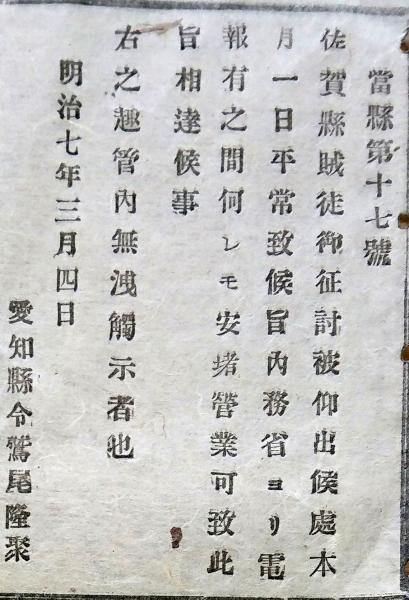 當縣第十七號
佐賀縣賊徒御征討被仰出候處本
月一日平常致候旨內務省ヨリ電
報有之間何レモ安堵營業可致此
旨相達候事
右之趣管內無洩觸示者也
明治七年三月四日
愛知縣令鷲尾隆聚